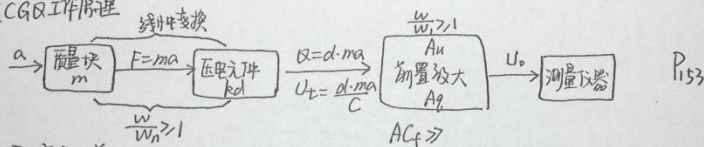 CGQ工作原理
线性变换
a
质量块
m
F=ma
压电元件
kd
Q=d·ma
U_t=d·ma/C
w/w_1≥1
Au
前置放大
Aq
U_o
测量仪器
P153
w/w_n≥1
AC_f≫